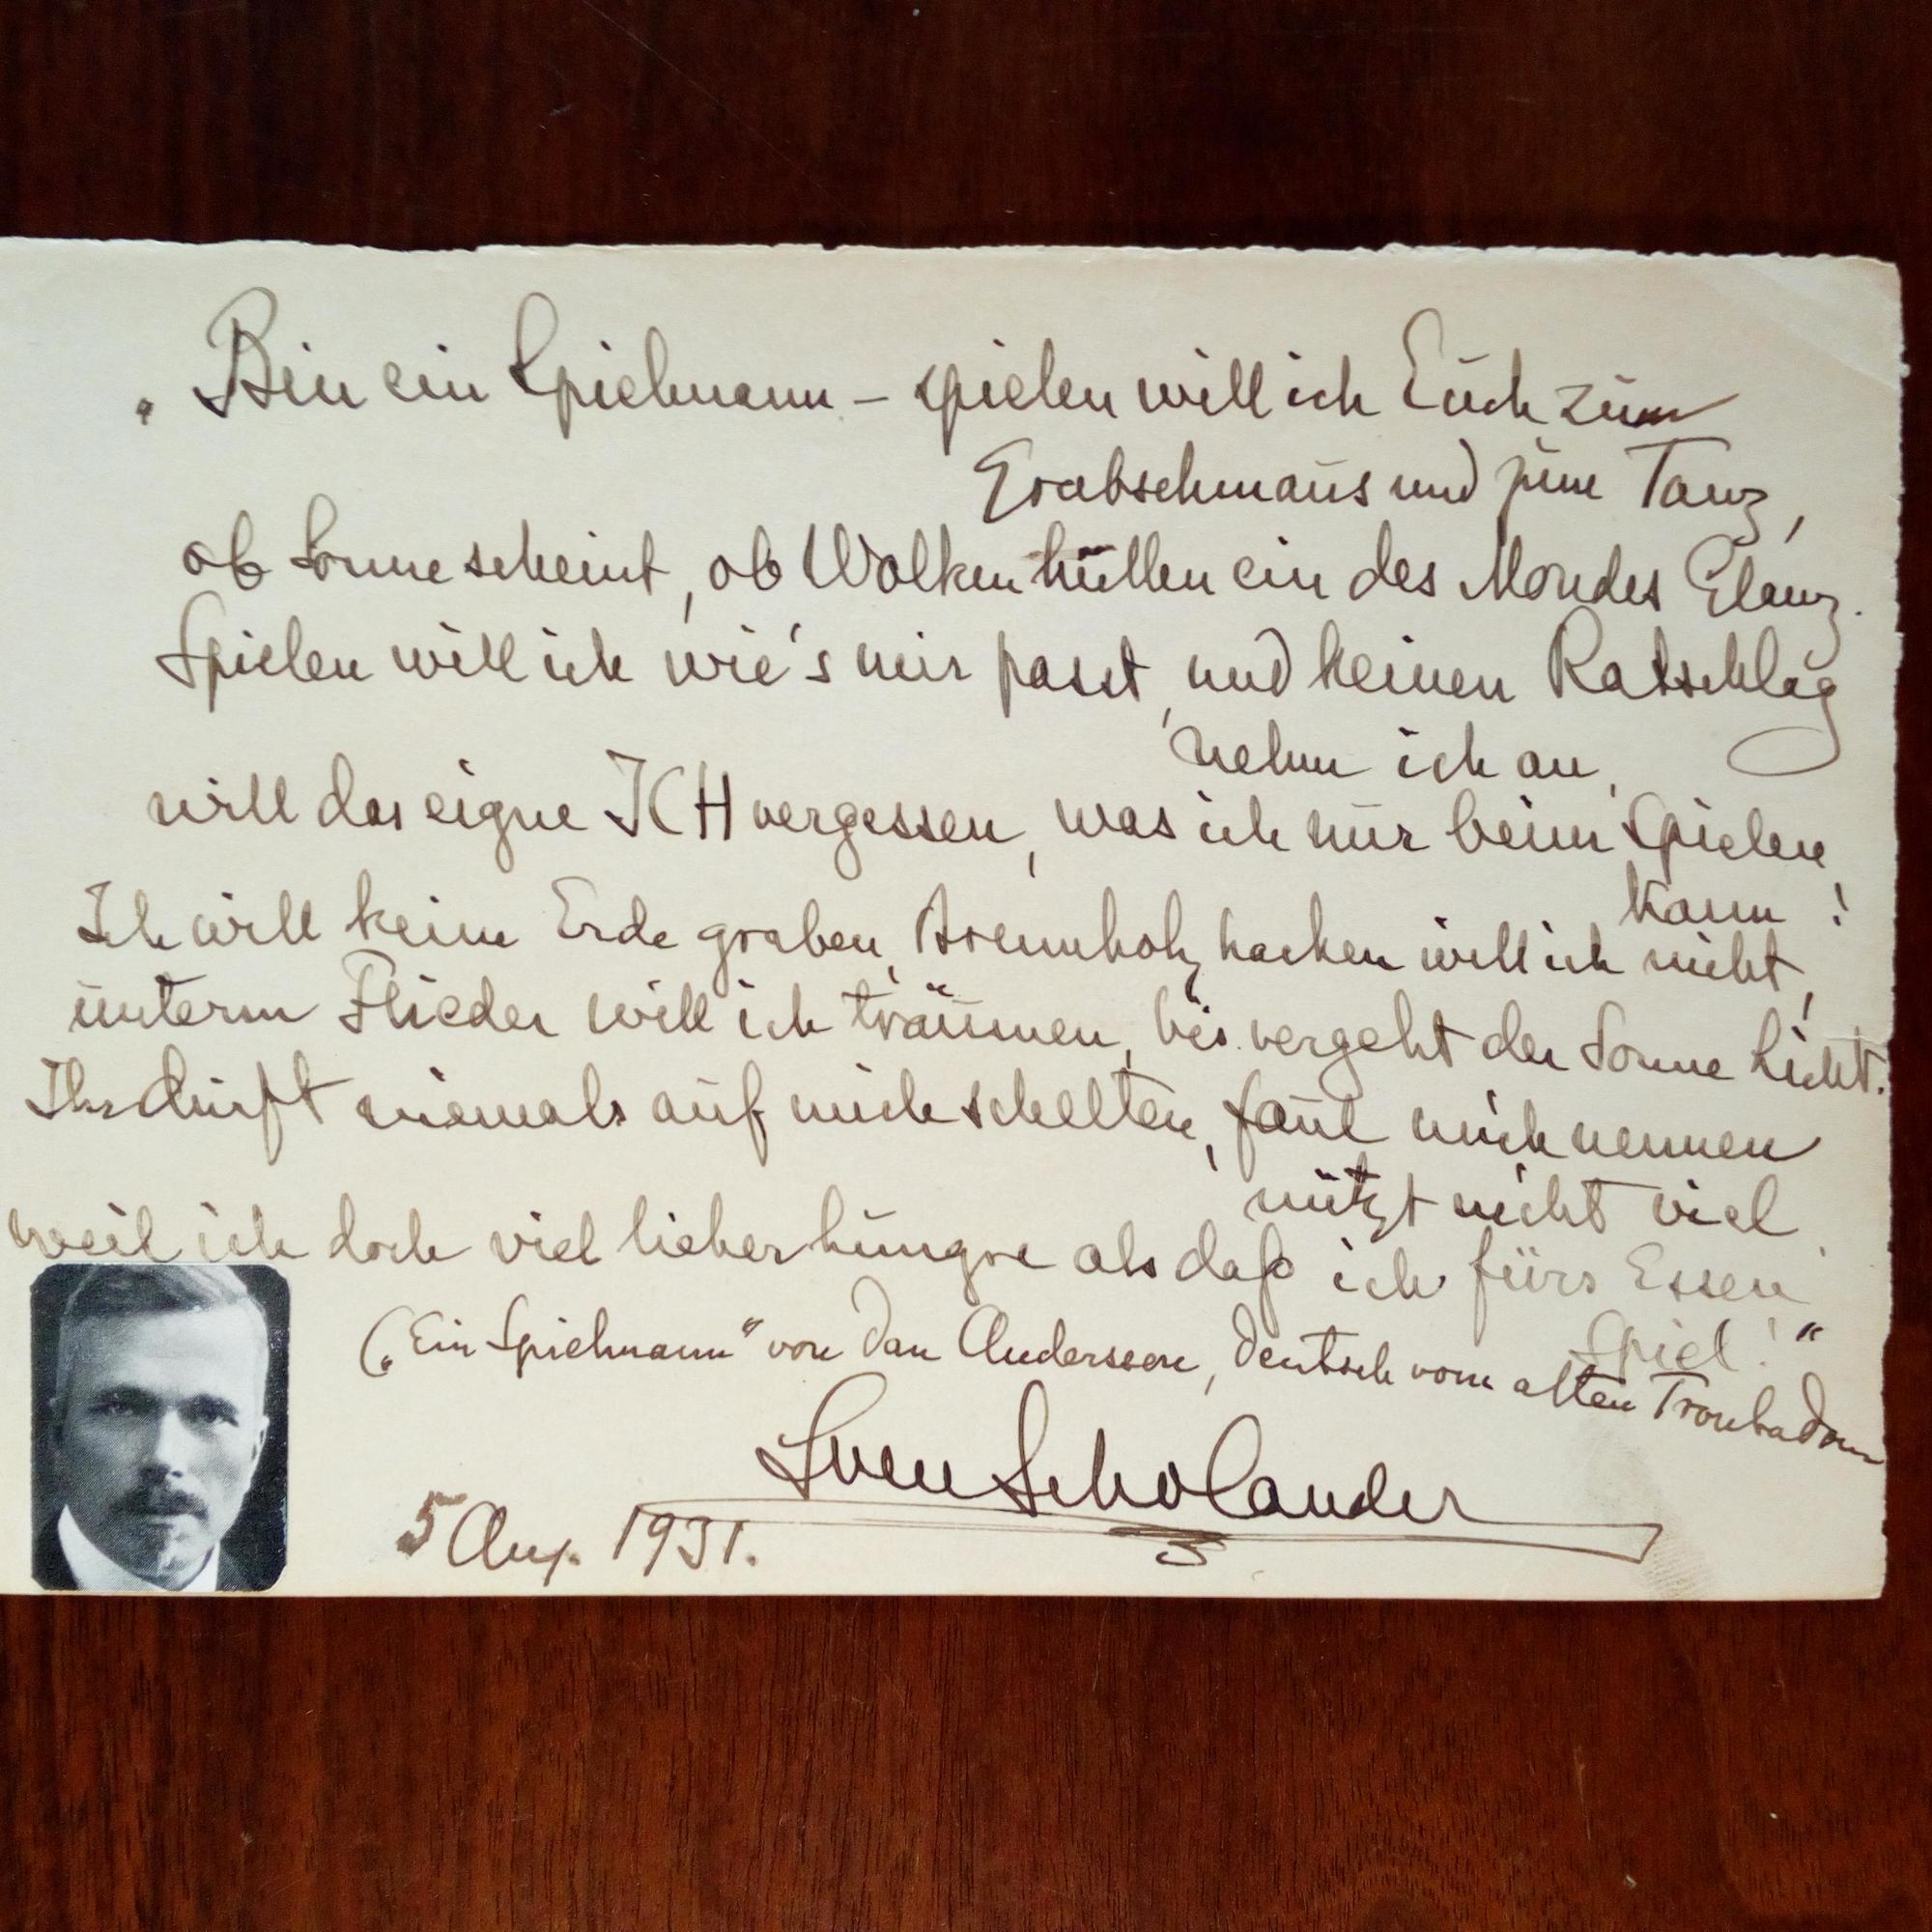 „Bin ein Spielmann – spielen will ich Euch zum
Grabschmaus und zum Tanz,
ob Sonne scheint, ob Wolken hüllen ein des Mondes Glanz.
Spielen will ich wie's mir passt, und keinen Ratschlag
nehm ich an,
will das eigne ICH vergessen, was ich nur beim Spielen
kann!
Ich will keine Erde graben, Brennholz hacken will ich nicht,
unterm Flieder will ich träumen, bis vergeht der Sonne Licht.
Ihr dürft niemals auf mich schelten, faul mich nennen
nützt nicht viel,
weil ich doch viel lieber hungre als daß ich fürs Essen
Spiel!“
(„Ein Spielmann“ von Dan Andersson, deutsch vom alten Troubadour
Sven Scholander
5 Aug. 1931.